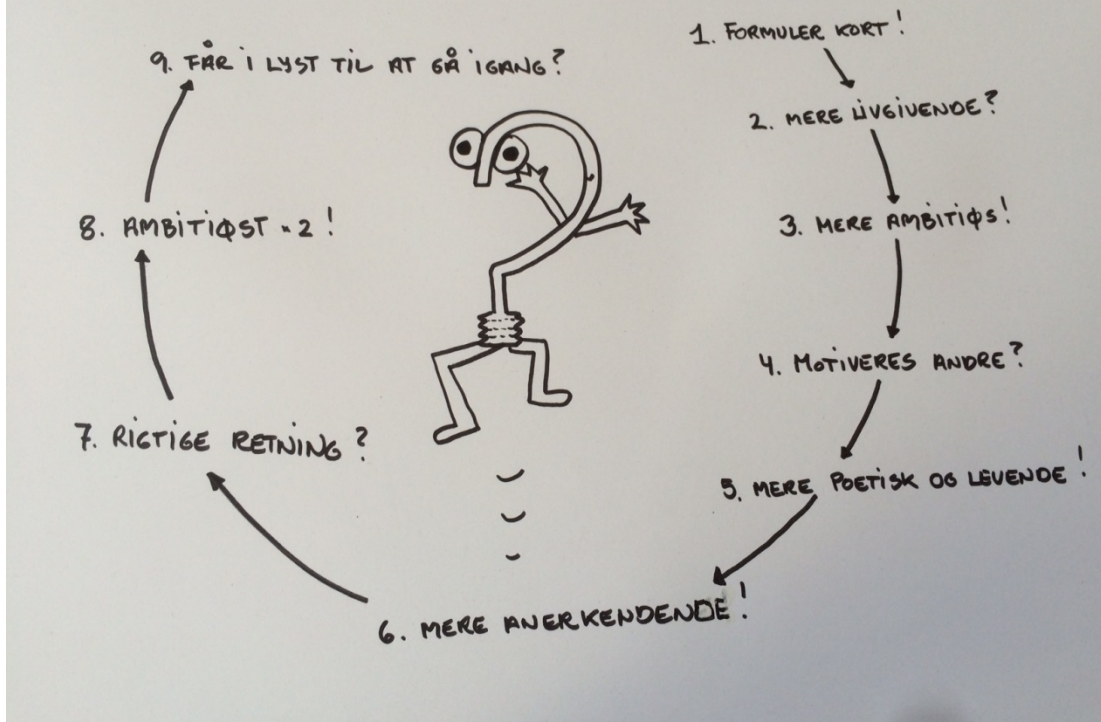 1. FORMULER KORT!
2. MERE LIVGIVENDE?
3. MERE AMBITIØS!
4. MOTIVERES ANDRE?
5. MERE POETISK OG LEVENDE!
6. MERE ANERKENDENDE!
7. RIGTIGE RETNING?
8. AMBITIØST × 2!
9. FÅR I LYST TIL AT GÅ IGANG?